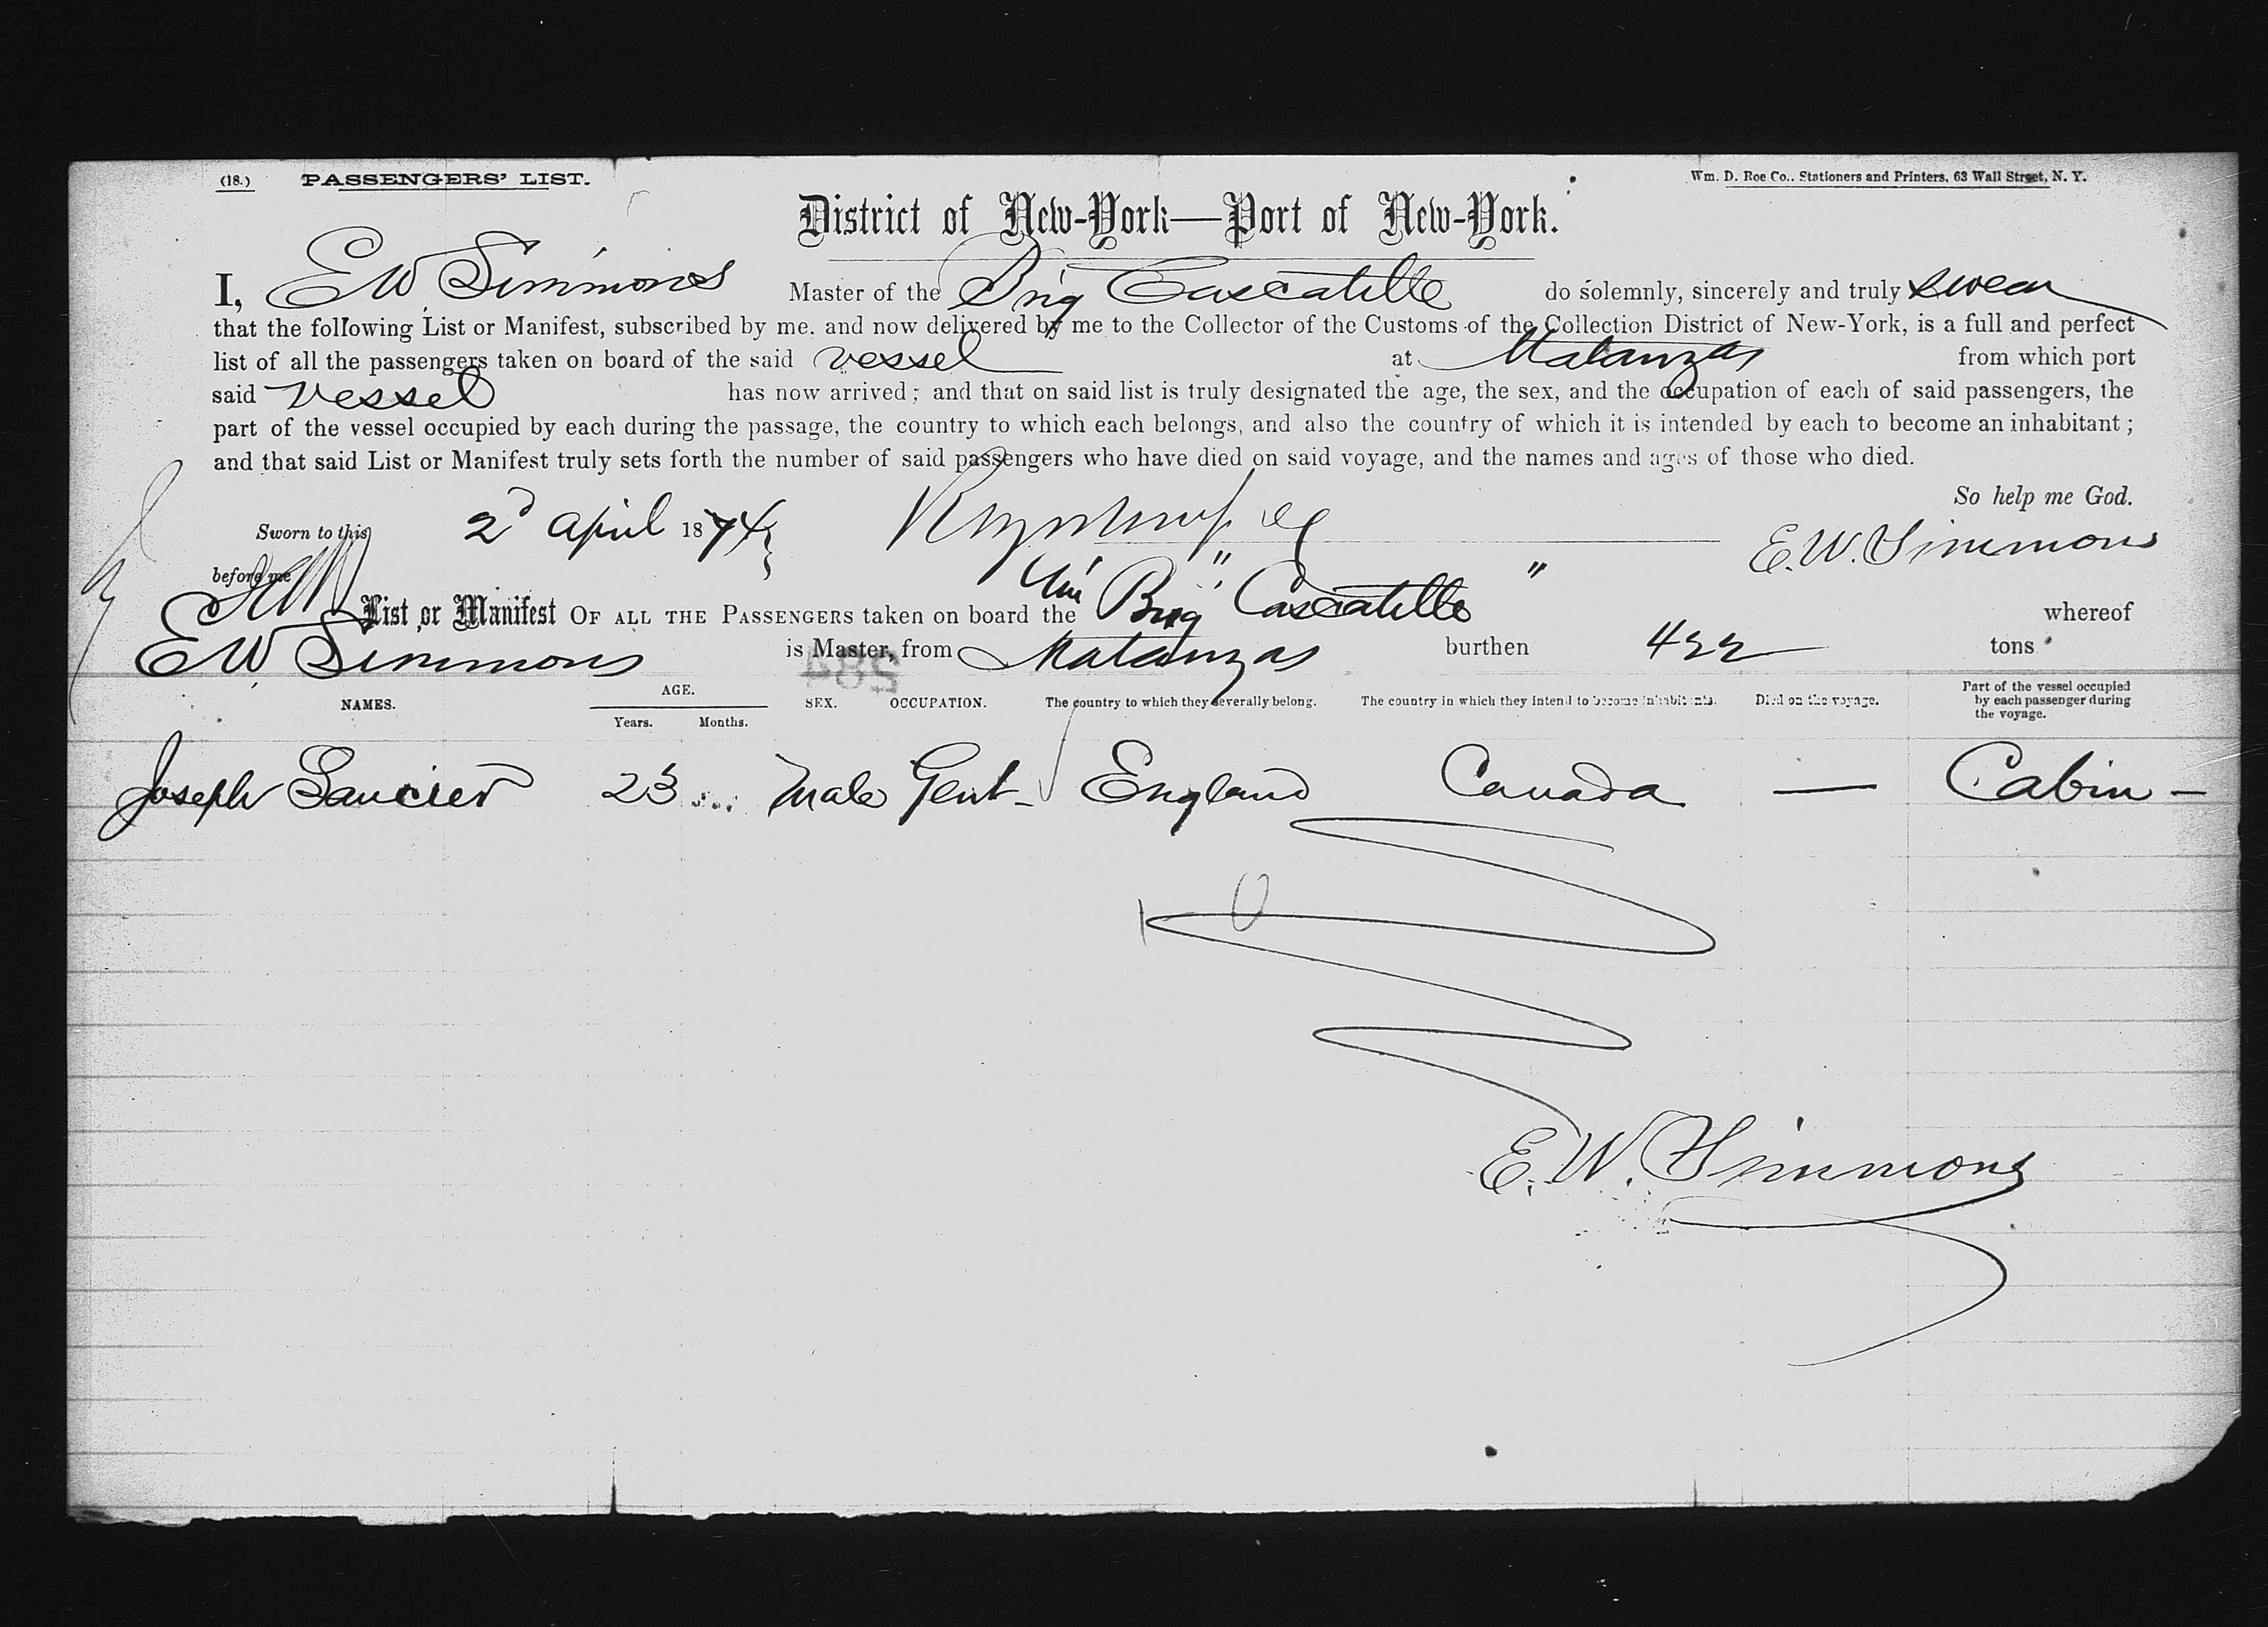 (18.) PASSENGERS' LIST.
Wm. D. Roe Co., Stationers and Printers, 63 Wall Street, N. Y.
District of New-York—Port of New-York.
I, E W Simmons Master of the Brig Cascatelle do solemnly, sincerely and truly swear
that the following List or Manifest, subscribed by me. and now delivered by me to the Collector of the Customs of the Collection District of New-York, is a full and perfect
list of all the passengers taken on board of the said vessel at Matanzas from which port
said vessel has now arrived; and that on said list is truly designated the age, the sex, and the occupation of each of said passengers, the
part of the vessel occupied by each during the passage, the country to which each belongs, and also the country of which it is intended by each to become an inhabitant;
and that said List or Manifest truly sets forth the number of said passengers who have died on said voyage, and the names and ages of those who died.
So help me God.
Sworn to this 2d April 1874
E. W. Simmons
before me
List or Manifest OF ALL THE PASSENGERS taken on board the Brig "Cascatelle" whereof
E W Simmons is Master, from Matanzas burthen 422 tons
584
NAMES. AGE. Years. Months. SEX. OCCUPATION. The country to which they severally belong. The country in which they intend to become inhabitants. Died on the voyage. Part of the vessel occupied by each passenger during the voyage.
Joseph Saucier 23 male Gent- England Canada — Cabin —
E. W. Simmons